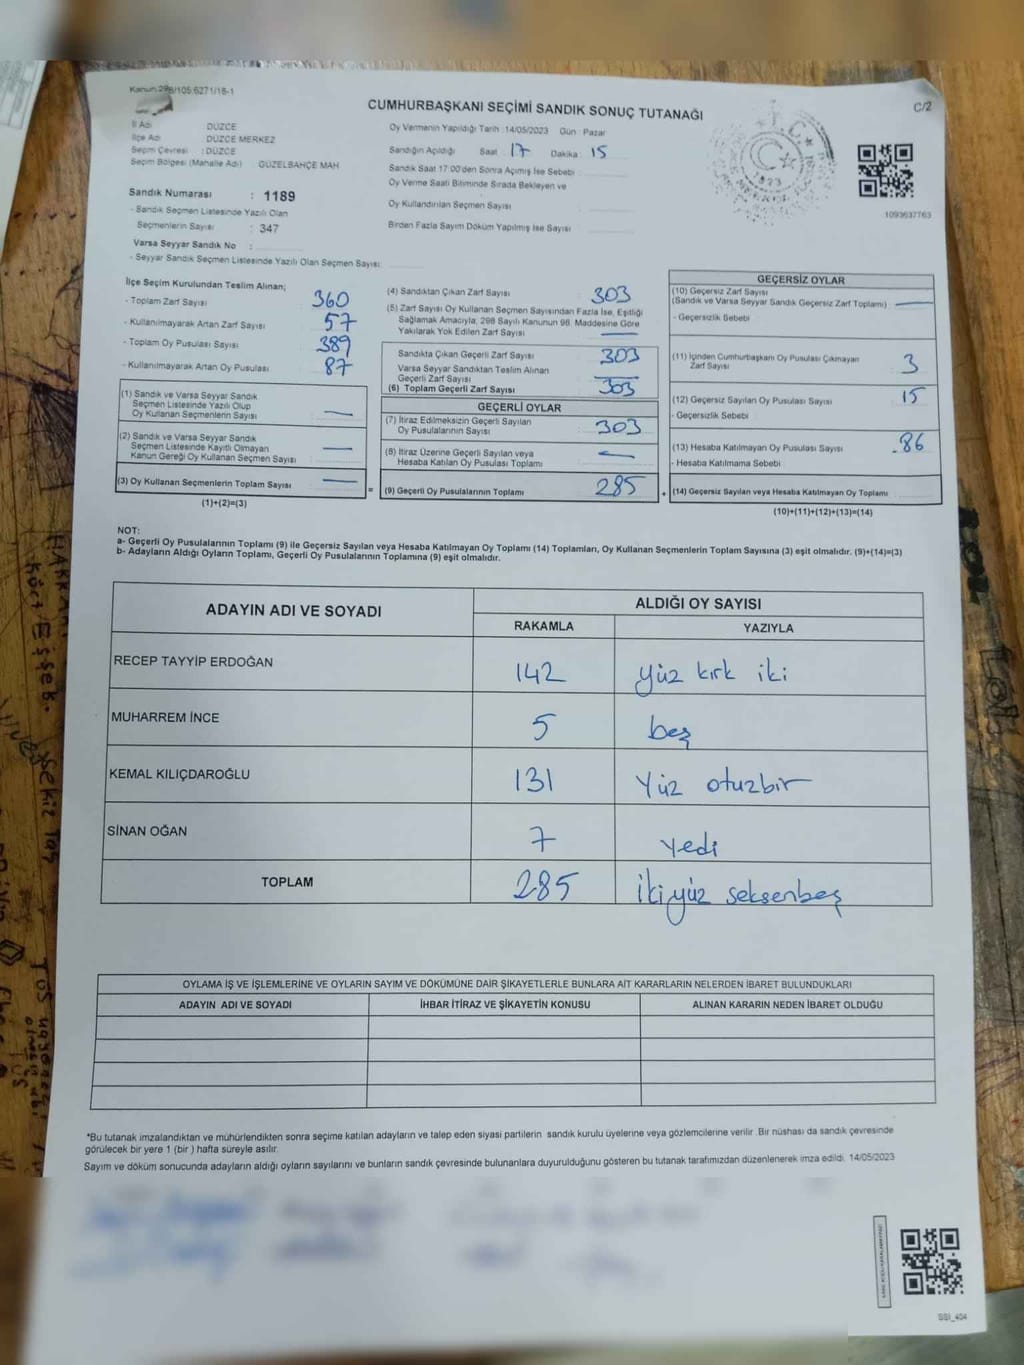 Kanun:298/105:6271/18-1
CUMHURBAŞKANI SEÇİMİ SANDIK SONUÇ TUTANAĞI
C/2
İl Adı : DÜZCE
İlçe Adı : DÜZCE MERKEZ
Seçim Çevresi : DÜZCE
Seçim Bölgesi (Mahalle Adı) GÜZELBAHÇE MAH
Sandık Numarası : 1189
- Sandık Seçmen Listesinde Yazılı Olan
Seçmenlerin Sayısı : 347
Varsa Seyyar Sandık No :
- Seyyar Sandık Seçmen Listesinde Yazılı Olan Seçmen Sayısı:
Oy Vermenin Yapıldığı Tarih :14/05/2023 Gün Pazar
Sandığın Açıldığı Saat : 17 Dakika : 15
Sandık Saat 17:00'den Sonra Açılmış İse Sebebi
Oy Verme Saati Bitiminde Sırada Bekleyen ve
Oy Kullandırılan Seçmen Sayısı
Birden Fazla Sayım Döküm Yapılmış İse Sayısı :
T.C.
1923
1093637763
İlçe Seçim Kurulundan Teslim Alınan;
- Toplam Zarf Sayısı 360
- Kullanılmayarak Artan Zarf Sayısı 57
- Toplam Oy Pusulası Sayısı 389
- Kullanılmayarak Artan Oy Pusulası 87
(1) Sandık ve Varsa Seyyar Sandık
Seçmen Listesinde Yazılı Olup
Oy Kullanan Seçmenlerin Sayısı : —
(2) Sandık ve Varsa Seyyar Sandık
Seçmen Listesinde Kayıtlı Olmayan
Kanun Gereği Oy Kullanan Seçmen Sayısı : —
(3) Oy Kullanan Seçmenlerin Toplam Sayısı : —
(1)+(2)=(3)
=
(4) Sandıktan Çıkan Zarf Sayısı 303
(5) Zarf Sayısı Oy Kullanan Seçmen Sayısından Fazla İse, Eşitliği
Sağlamak Amacıyla, 298 Sayılı Kanunun 98. Maddesine Göre
Yakılarak Yok Edilen Zarf Sayısı —
Sandıkta Çıkan Geçerli Zarf Sayısı 303
Varsa Seyyar Sandıktan Teslim Alınan
Geçerli Zarf Sayısı —
(6) Toplam Geçerli Zarf Sayısı 303
GEÇERLİ OYLAR
(7) İtiraz Edilmeksizin Geçerli Sayılan
Oy Pusulalarının Sayısı 303
(8) İtiraz Üzerine Geçerli Sayılan veya
Hesaba Katılan Oy Pusulası Toplamı —
(9) Geçerli Oy Pusulalarının Toplamı 285
+
GEÇERSİZ OYLAR
(10) Geçersiz Zarf Sayısı
(Sandık ve Varsa Seyyar Sandık Geçersiz Zarf Toplamı) —
- Geçersizlik Sebebi
(11) İçinden Cumhurbaşkanı Oy Pusulası Çıkmayan
Zarf Sayısı 3
(12) Geçersiz Sayılan Oy Pusulası Sayısı 15
- Geçersizlik Sebebi
(13) Hesaba Katılmayan Oy Pusulası Sayısı 86
- Hesaba Katılmama Sebebi
(14) Geçersiz Sayılan veya Hesaba Katılmayan Oy Toplamı
(10)+(11)+(12)+(13)=(14)
NOT:
a- Geçerli Oy Pusulalarının Toplamı (9) ile Geçersiz Sayılan veya Hesaba Katılmayan Oy Toplamı (14) Toplamları, Oy Kullanan Seçmenlerin Toplam Sayısına (3) eşit olmalıdır. (9)+(14)=(3)
b- Adayların Aldığı Oyların Toplamı, Geçerli Oy Pusulalarının Toplamına (9) eşit olmalıdır.
ADAYIN ADI VE SOYADI
ALDIĞI OY SAYISI
RAKAMLA YAZIYLA
RECEP TAYYİP ERDOĞAN 142 yüz kırk iki
MUHARREM İNCE 5 beş
KEMAL KILIÇDAROĞLU 131 Yüz otuzbir
SİNAN OĞAN 7 yedi
TOPLAM 285 İkiyüz seksenbeş
OYLAMA İŞ VE İŞLEMLERİNE VE OYLARIN SAYIM VE DÖKÜMÜNE DAİR ŞİKAYETLERLE BUNLARA AİT KARARLARIN NELERDEN İBARET BULUNDUKLARI
ADAYIN ADI VE SOYADI İHBAR İTİRAZ VE ŞİKAYETİN KONUSU ALINAN KARARIN NEDEN İBARET OLDUĞU
*Bu tutanak imzalandıktan ve mühürlendikten sonra seçime katılan adayların ve talep eden siyasi partilerin sandık kurulu üyelerine veya gözlemcilerine verilir. Bir nüshası da sandık çevresinde
görülecek bir yere 1 (bir ) hafta süreyle asılır.
Sayım ve döküm sonucunda adayların aldığı oyların sayılarını ve bunların sandık çevresinde bulunanlara duyurulduğunu gösteren bu tutanak tarafımızdan düzenlenerek imza edildi. 14/05/2023
SSI_404